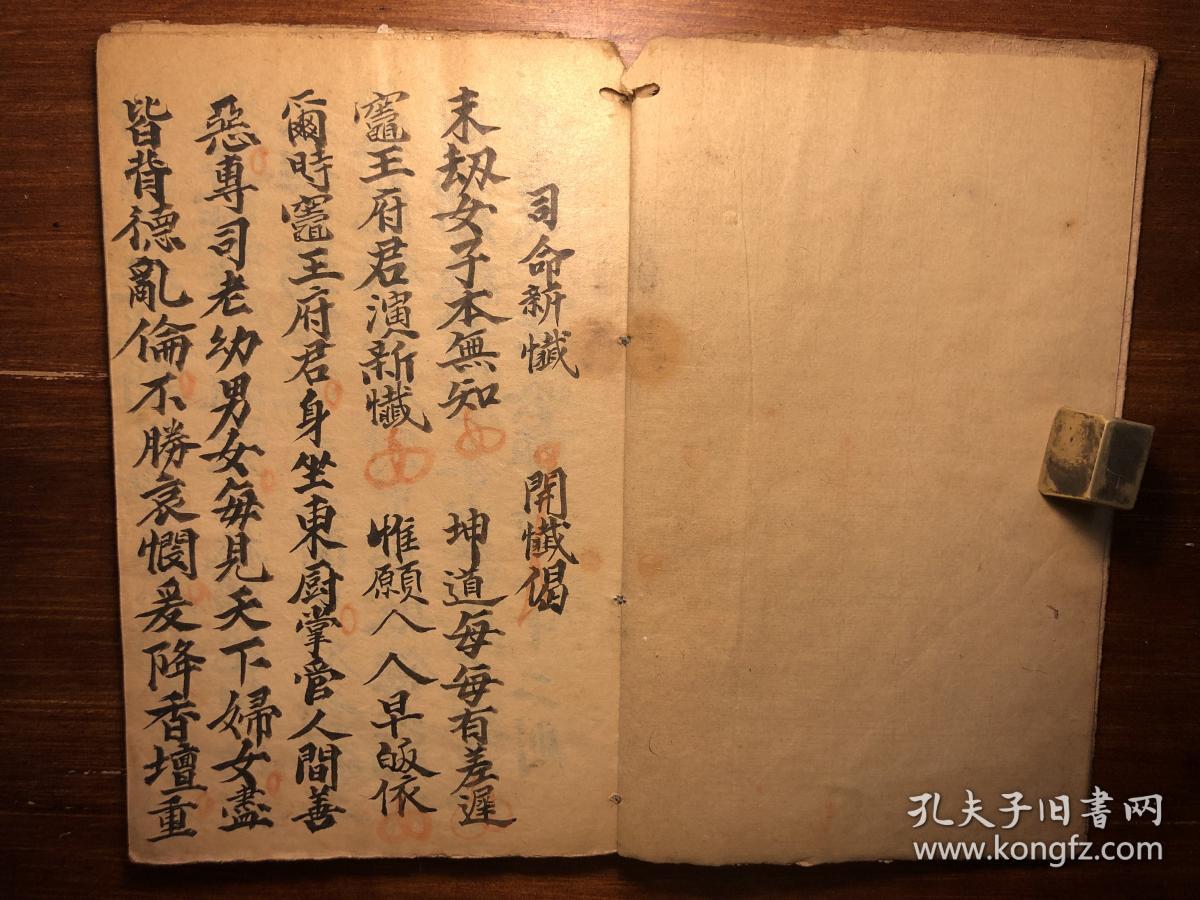 司命新懺　開懺偈
末劫女子本無知　坤道每每有差遲
竈王府君演新懺　惟願人人早皈依
爾時竈王府君身坐東廚掌管人間善
惡專司老幼男女每見天下婦女盡
皆背德亂倫不勝哀憫爰降香壇重
孔夫子旧書网
www.kongfz.com